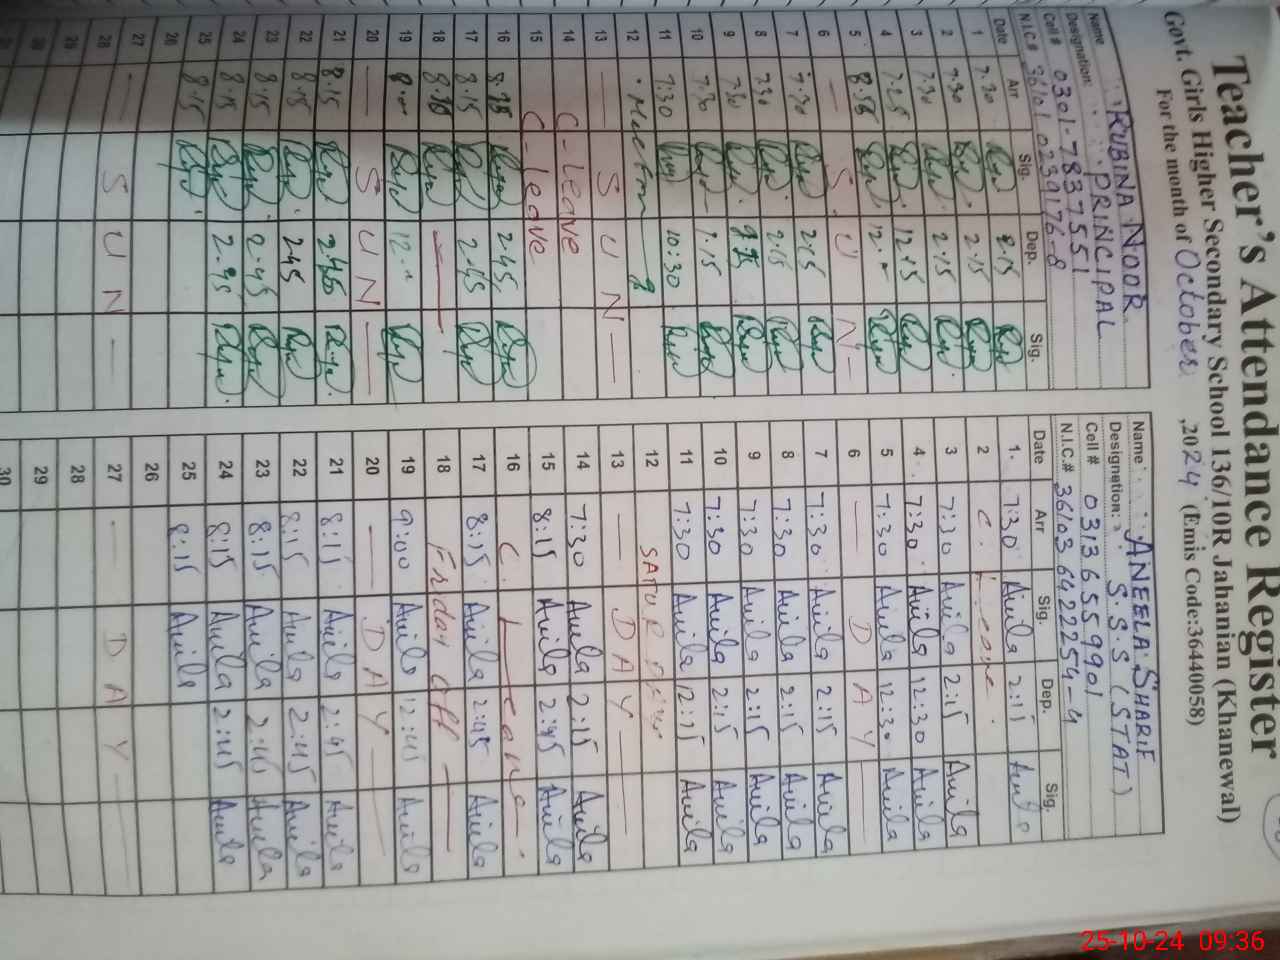 Teacher's Attendance Register
Govt. Girls Higher Secondary School 136/10R Jahanian (Khanewal)
For the month of October ,2024 (Emis Code:36440058)
Name RUBINA NOOR
Designation: PRINCIPAL
Cell # 0301-7837551
N.I.C.# 36101 0239176-8
Date Arr Sig. Dep. Sig.
1 7.30 2.15
2 7.30 2.15
3 7.30 12.15
4 7.25 12.
5 8.
6 — S U N —
7 7.30 2.15
8 7.30 2.15
9 7.30
10 7.30 1.15
11 7:30 10:30
12 Meeting
13 — S U N —
14 C-LEAVE
15 C-leave
16 2.45
17 8.15 2.45
18 8. —
19 8. 12.
20 — S U N —
21 8.15 2.45
22 8.15 2.45
23 8.15 2.45
24 8.15 2.45
25 8.15
26
27 — S U N —
28
29
30
Name ANEELA SHARIF
Designation: S.S.S (STAT)
Cell # 0313 6559901
N.I.C.# 36103 6422254-4
Date Arr Sig. Dep. Sig.
1. 7:30 Anila 2:15 Anila
2 C. Leave
3 7:30 Anila 2:15 Anila
4 7:30 Anila 12:30 Anila
5 7:30 Anila 12:30 Anila
6 — D A Y —
7 7:30 Anila 2:15 Anila
8 7:30 Anila 2:15 Anila
9 7:30 Anila 2:15 Anila
10 7:30 Anila 2:15 Anila
11 7:30 Anila 12:15 Anila
12 SATUR
13 — D A Y —
14 7:30 Anila 2:15 Anila
15 8:15 Anila 2:45 Anila
16 C. Leave
17 8:15 Anila 2:45 Anila
18 Friday off —
19 9:00 Anila 12:45 Anila
20 — D A Y —
21 8:15 Anila 2:45 Anila
22 8:15 Anila 2:45 Anila
23 8:15 Anila 2:45 Anila
24 8:15 Anila 2:45 Anila
25 8:15 Anila
26
27 — D A Y —
28
29
30
25-10-24 09:36